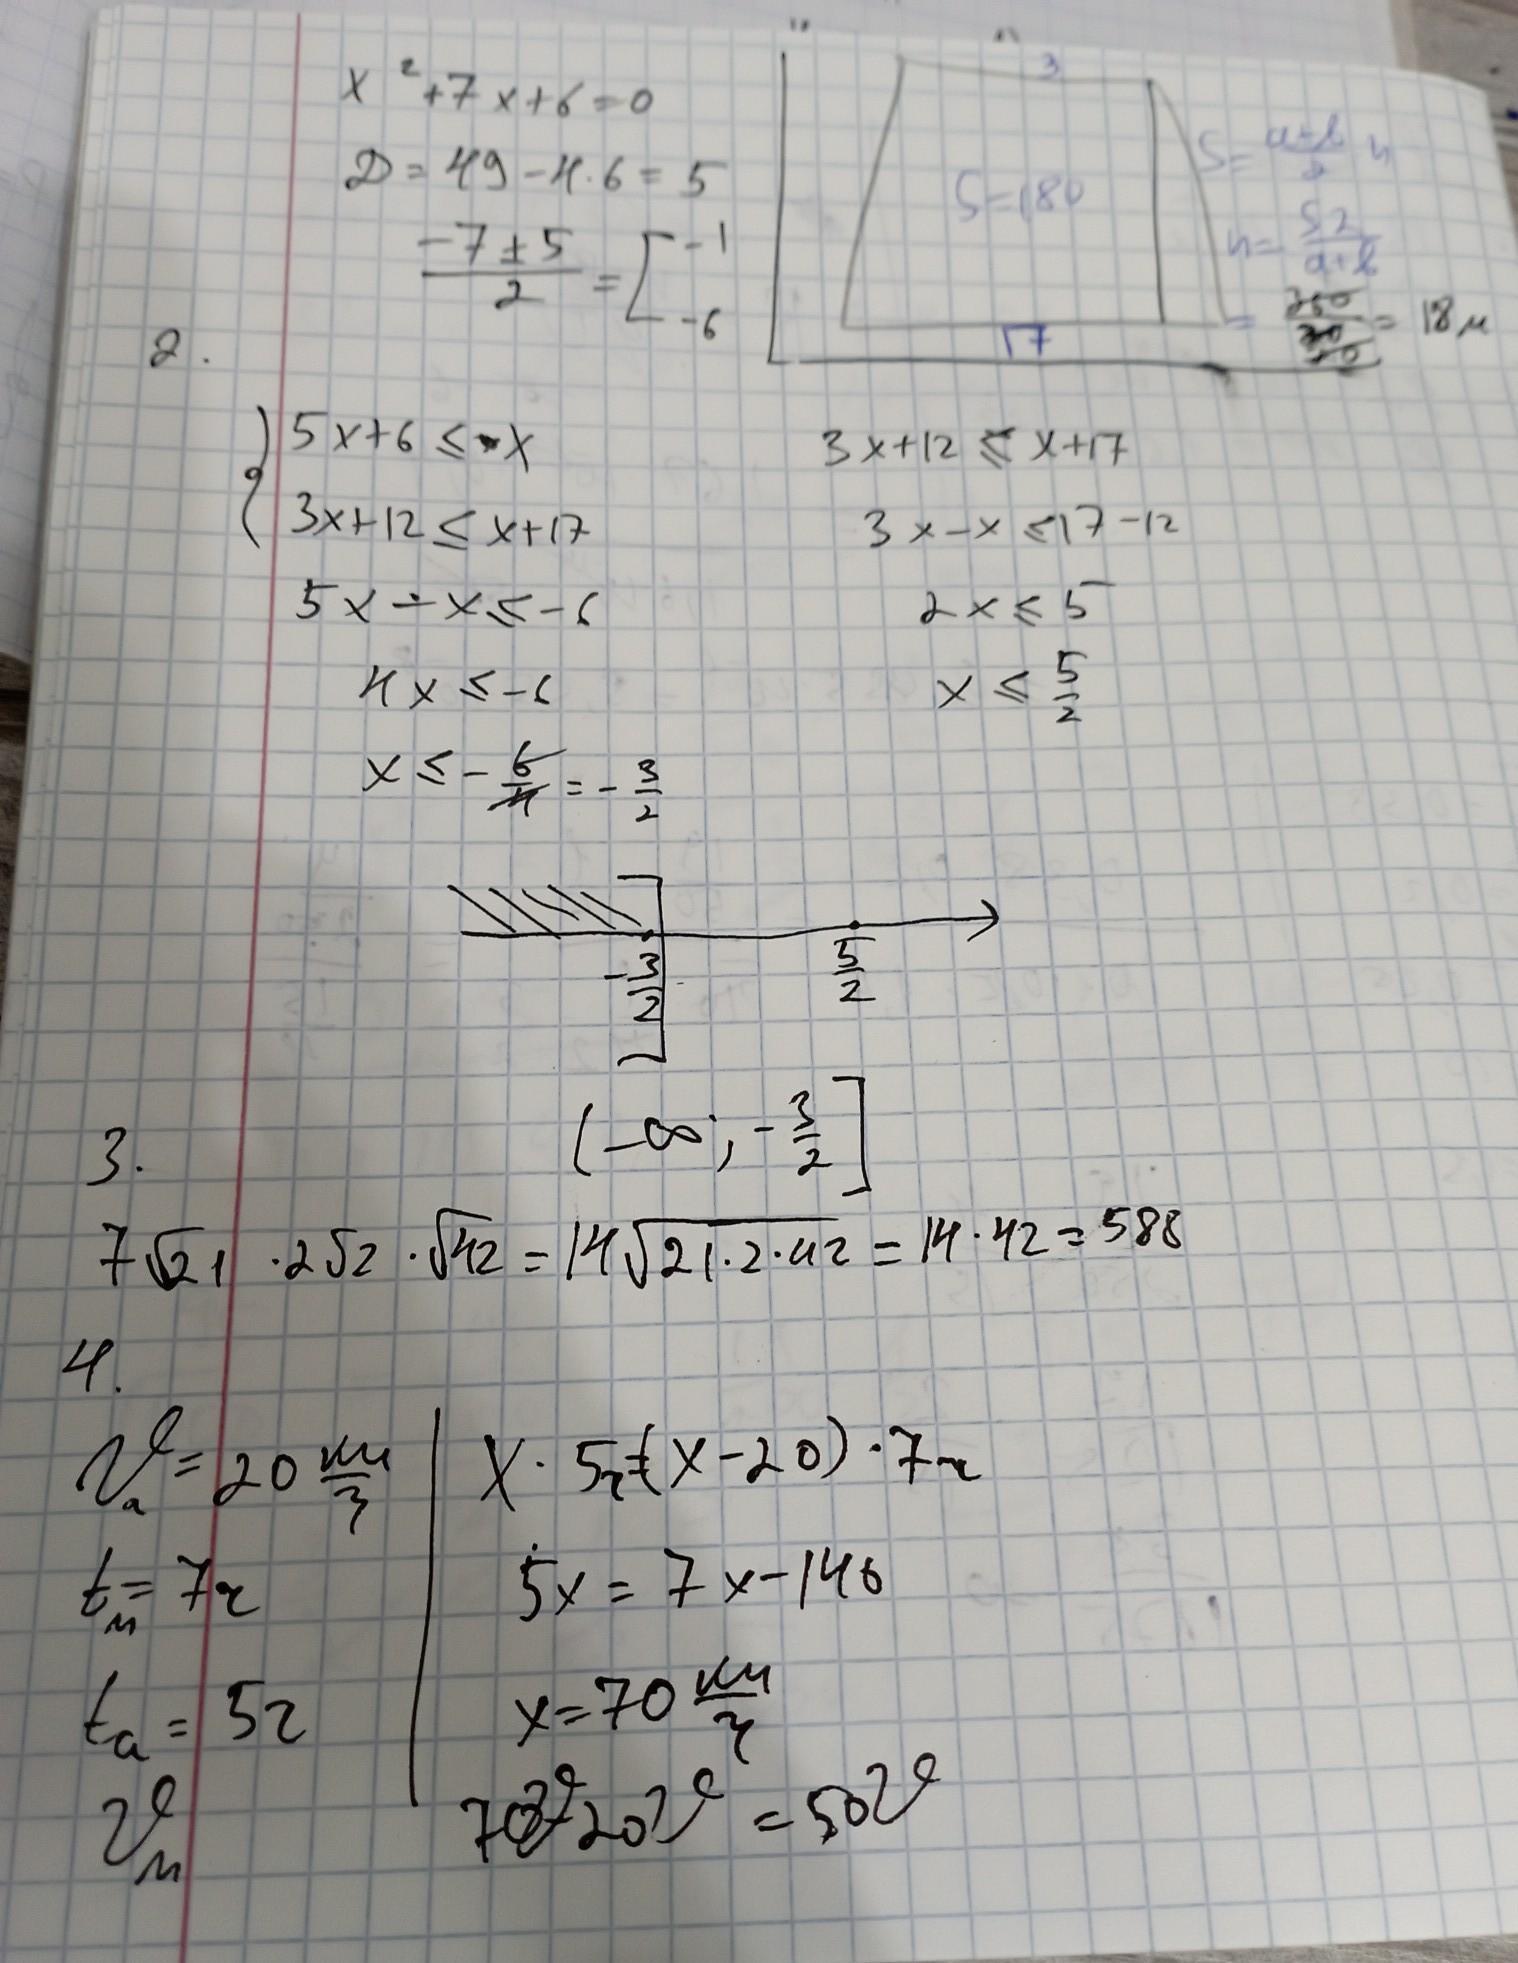 x² + 7x + 6 = 0
D = 49 - 4·6 = 5
(-7 ± 5)/2 = [ -1
-6
3
S = 180
17
S = (a+b)/2 h
h = S2/(a+b)
= 360/20 = 18м
2.
{ 5x + 6 ≤ x
3x + 12 ≤ x + 17
5x - x ≤ -6
4x ≤ -6
x ≤ -6/4 = -3/2
3x + 12 ≤ x + 17
3x - x ≤ 17 - 12
2x ≤ 5
x ≤ 5/2
-3/2
5/2
(-∞; -3/2]
3.
7√21 · 2√2 · √42 = 14√21·2·42 = 14·42 = 588
4.
𝒱а = 20 км/ч
tм = 7ч
tа = 5ч
𝒱м
x · 5ч = (x - 20) · 7ч
5x = 7x - 140
x = 70 км/ч
70𝒱 - 20𝒱 = 50𝒱